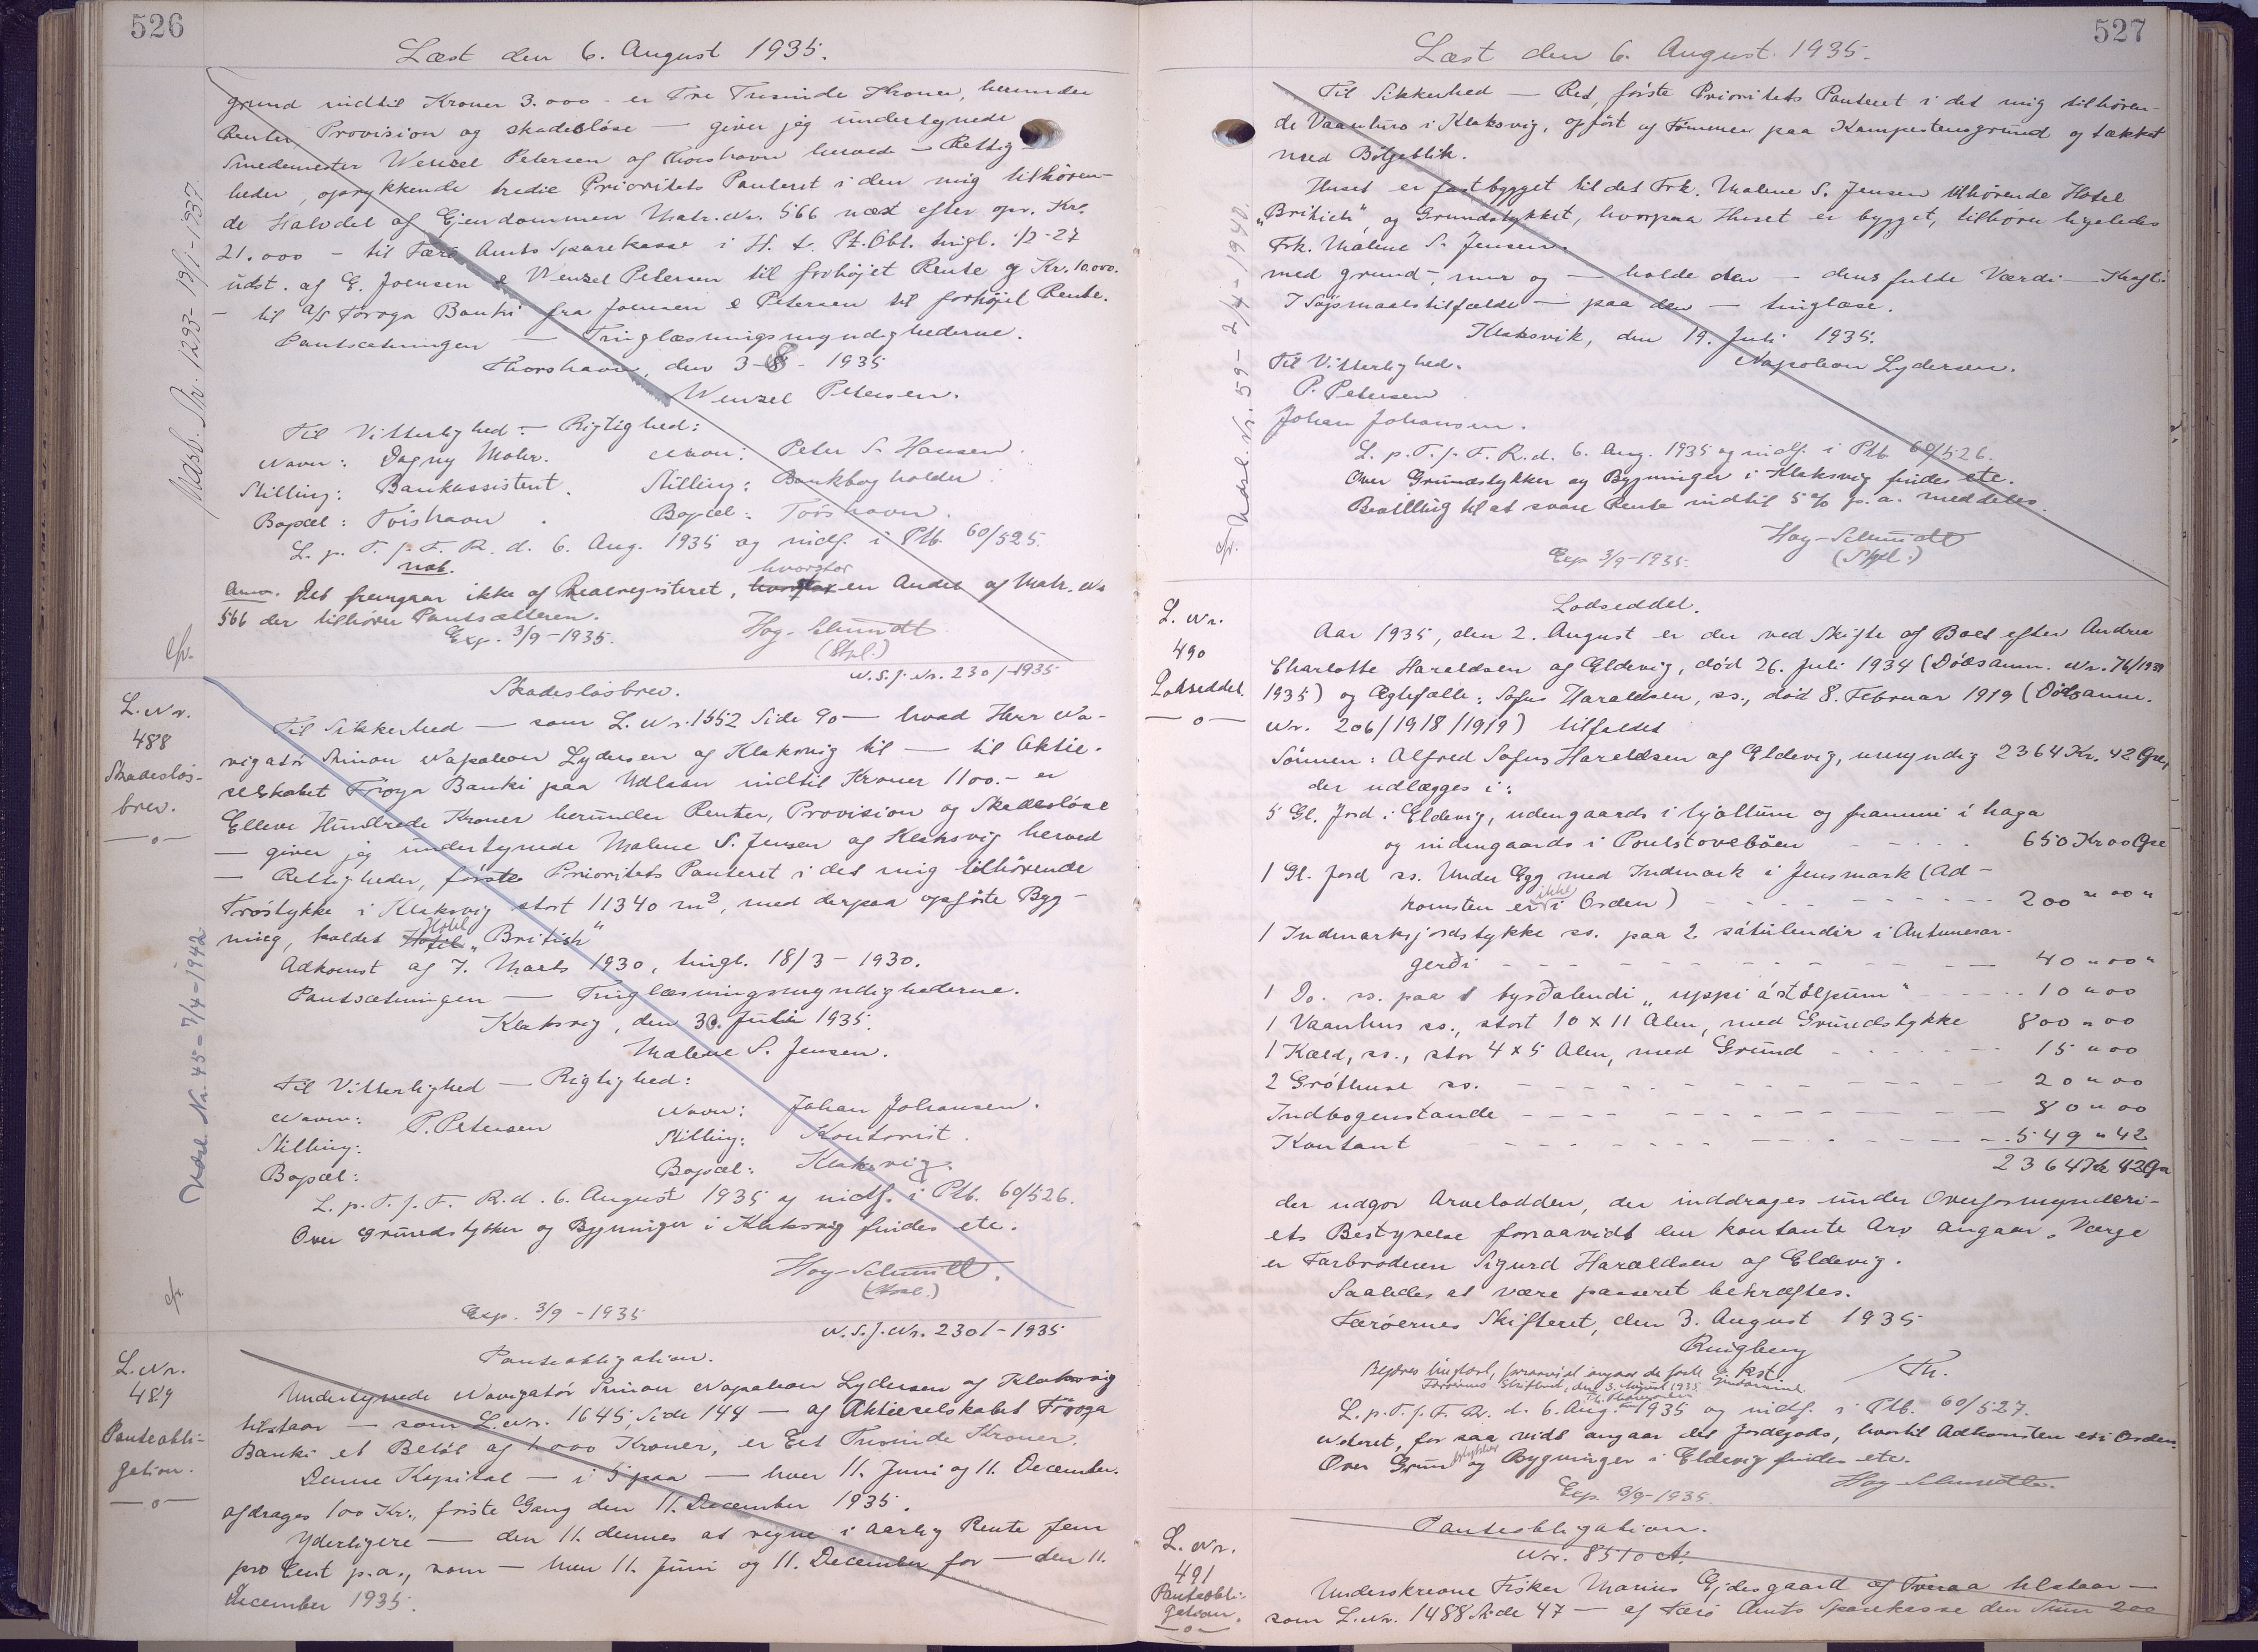 526
Læst den 6. August 1935.
grund indtil Kroner 3.000 - er Tre Tusinde Kroner, herunder
Renter, Provision og skadesløse — giver jeg undertegnede
Smedemester Wenzel Petersen af Thorshavn herved — Rettig-
heder, oprykkende tredie Prioritets Panteret i den mig tilhøren-
de Halvdel af Ejendommen Matr. Nr. 566 næst efter opr. Kr.
21.000 - til Færø Amts Sparekasse i H. t. Pt. Obl. tingl. 1/2-27
udst. af E. Joensen & Wenzel Petersen til forhøjet Rente og Kr. 10.000.
- til A/S Føroya Banki fra Joensen & Petersen til forhøjet Rente.
Pantsætningen — Tinglæsningsmyndighederne.
Thorshavn, den 3-8-1935
Wenzel Petersen.
Til Vitterlighed — Rigtighed:
Navn: Dagny Mohr. Navn: Peter S. Hansen.
Stilling: Bankassistent. Stilling: Bankbogholder.
Bopæl: Tórshavn. Bopæl: Tórshavn.
L. p. T. f. F. R. d. 6. Aug. 1935 og indf. i Ptb. 60/525.
not. hvorstor
Anm. Det fremgaar ikke af Realregisteret, hvorstor en Andel af Matr. Nr.
566 der tilhører Pantsætteren.
Exp. 3/9-1935. Hoy-Schmidt
(Stpl.)
Udsl. Nr. 1293-19/1-1937
cfr.
N.S.J. Nr. 2301-1935
L. Nr.
488
Skadesløs-
brev.
—o—
Skadesløsbrev.
Til Sikkerhed — som L. Nr. 1552 Side 90 — hvad Herr Na-
vigatør Simon Napoleon Lydersen af Klaksvig til — til Aktie-
selskabet Føroya Banki paa Udlaan indtil Kroner 1100.- er
Elleve Hundrede Kroner herunder Renter, Provision og Skadesløse
— giver jeg undertegnede Malene S. Jensen af Klaksvig herved
— Rettigheder, første Prioritets Panteret i det mig tilhørende
Trøstykke i Klaksvig stort 11340 m², med derpaa opførte Byg-
ning, kaldet Hotel Hotel „British“
Adkomst af 7. Marts 1930, tingl. 18/3-1930.
Pantsætningen — Tinglæsningsmyndighederne.
Klaksvig, den 30. Juli 1935.
Malene S. Jensen.
Til Vitterlighed — Rigtighed:
Navn: P. Petersen Navn: Johan Johansen.
Stilling: Stilling: Kontorist.
Bopæl: Bopæl: Klaksvig.
L. p. T. f. F. R. d. 6. August 1935 og indf. i Ptb. 60/526.
Over Grundstykker og Bygninger i Klaksvig findes etc.
Hoy-Schmidt.
(Stpl.)
Exp. 3/9-1935
Udsl. Nr. 45-7/4-1942
cfr.
N.S.J. Nr. 2301-1935
L. Nr.
489
Panteobli-
gation.
—o—
Panteobligation.
Undertegnede Navigatør Simon Napoleon Lydersen af Klaksvig
tilstaar — som L. Nr. 1645, Side 144 — af Aktieselskabet Føroya
Banki et Beløb af 1.000 Kroner, er Eet Tusinde Kroner.
Denne Kapital — i 5 paa — hver 11. Juni og 11. December.
afdrages 100 Kr., første Gang den 11. December 1935.
Yderligere — den 11. dennes at regne i aarlig Rente fem
pro Cent p.a., som — hver 11. Juni og 11. December for — den 11.
December 1935.
527
Læst den 6. August 1935.
Til Sikkerhed — Ret, første Prioritets Panteret i det mig tilhøren-
de Vaanhus i Klaksvig, opført af Tømmer paa Kampestensgrund og tækket
med Bølgeblik.
Huset er fastbygget til det Frk. Malene S. Jensen tilhørende Hotel
„British“, og Grundstykket, hvorpaa Huset er bygget, tilhører ligeledes
Frk. Malene S. Jensen.
med grund-, mur og — holde den — dens fulde Værdi — Kraft.
I Søgsmaalstilfælde — paa den — tinglæse.
Klaksvik, den 19. Juli 1935.
Til Vitterlighed. Napoleon Lydersen.
P. Petersen
Johan Johansen.
L. p. T. f. F. R. d. 6. Aug. 1935 og indf. i Ptb. 60/526.
Over Grundstykker og Bygninger i Klaksvig findes etc.
Bevilling til at svare Rente indtil 5 % p. a. meddeles.
Hoy-Schmidt
(Stpl.)
Exp 3/9-1935.
cfr. Udsl. Nr. 59-2/4-1940.
L. Nr.
490
Lodseddel.
—o—
Lodseddel.
Aar 1935, den 2. August er der ved Skifte af Boet efter Andrea
Charlotte Haraldsen af Eldevig, død 26. Juli 1934 (Dødsanm. Nr. 76/1934
1935) og Ægtefælle: Sofus Haraldsen, ss., død 8. Februar 1919 (Dødsanm.
Nr. 206/1918/1919) tilfaldet
Sønnen: Alfred Sofus Haraldsen af Eldevig, umyndig 2364 Kr. 42 Øre,
der udlægges i:
5 Gl. Jord i Eldevig, udengaards i hjøllum og frammi í haga
og indengaards i Poulstovebøen - - - - 650 Kr 00 Øre
1 Gl. Jord ss. Under Egg med Indmark i Jensmark (Ad-
komsten er ikke i Orden) - - - - - - 200 " 00 "
1 Indmarksjordstykke ss. paa 2 sátulendir i Antunesar-
gerði - - - - - - - - - - 40 " 00 "
1 Do. ss. paa 1 byrðalendi „uppi á stólpum“ - - - - 10 " 00
1 Vaanhus ss., stort 10 x 11 Alen, med Grundstykke 800 " 00
1 Kæld, ss., stor 4 x 5 Alen, med Grund - - - - - 15 " 00
2 Gróthuse ss. - - - - - - - - - 20 " 00
Indbogenstande - - - - - - - - - 80 " 00
Kontant - - - - - - - - - 549 " 42
2364 Kr 42 Øre
der udgør Arvelodden, der inddrages under Overformynderi-
ets Bestyrelse forsaavidt den kontante Arv angaar. Værge
er Farbroderen Sigurd Haraldsen af Eldevig.
Saaledes at være passeret bekræftes.
Færøernes Skifteret, den 3. August 1935
Ringberg
/Th.
Begæres tinglæst, forsaavidt angaar de faste Ejendomme.
Færøernes Skifteret, den 3. August 1935
L. p. T. f. F. R. d. 6. Aug. 1935 og indf. i Ptb. 60/527.
Noteret, for saa vidt angaar det Jordegods, hvortil Adkomsten er i Orden.
Over Grundstykker og Bygninger i Eldevig findes etc.
Exp. 3/9-1935. Hoy-Schmidt.
L. Nr.
491
Panteobli-
gation.
—o—
Panteobligation.
Nr. 8510 A.
Underskrevne Fisker Marius Ejdesgaard af Tveraa tilstaar —
som L. Nr. 1488 Side 47 — af Færø Amts Sparekasse den Sum 200